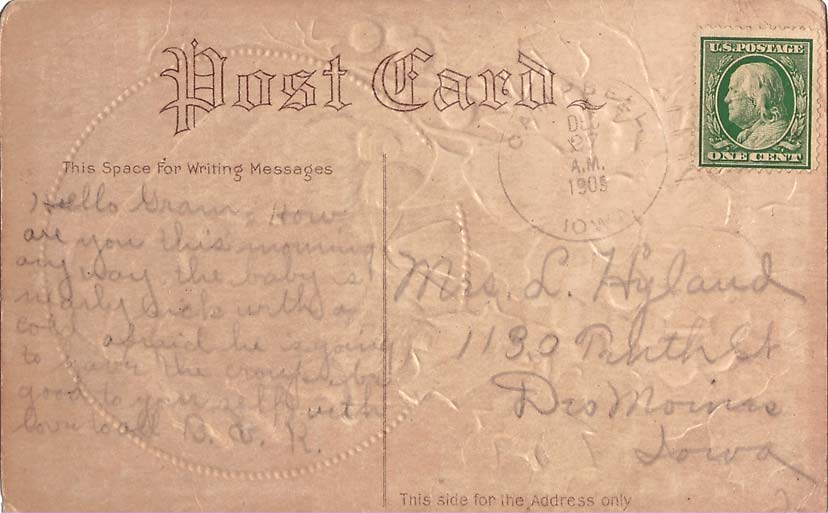 Post Card
U.S. POSTAGE
ONE CENT
CAMPBELL
DEC
27
A.M.
IOWA
This Space For Writing Messages
Hello Gram, How
are you this morning
any way the baby is
nearly sick with a
cold afraid he is going
to have the croup, be
good to your self with
love to all B. V. K.
Mrs. L. Hyland
1130 Tenth St
Des Moines
Iowa
This side for the Address only